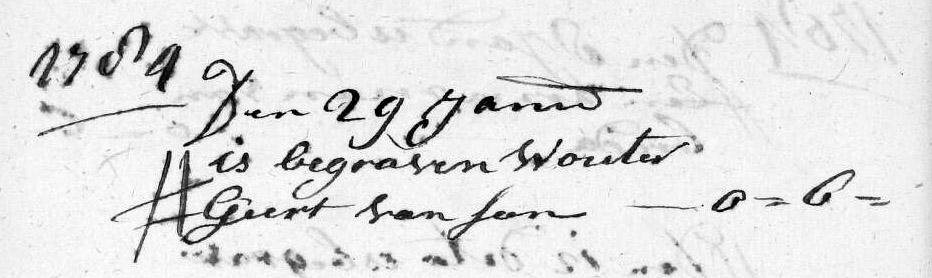 1784
Den 29 Janu
is begraven Wouter
Geert van son — 0 = 6 =